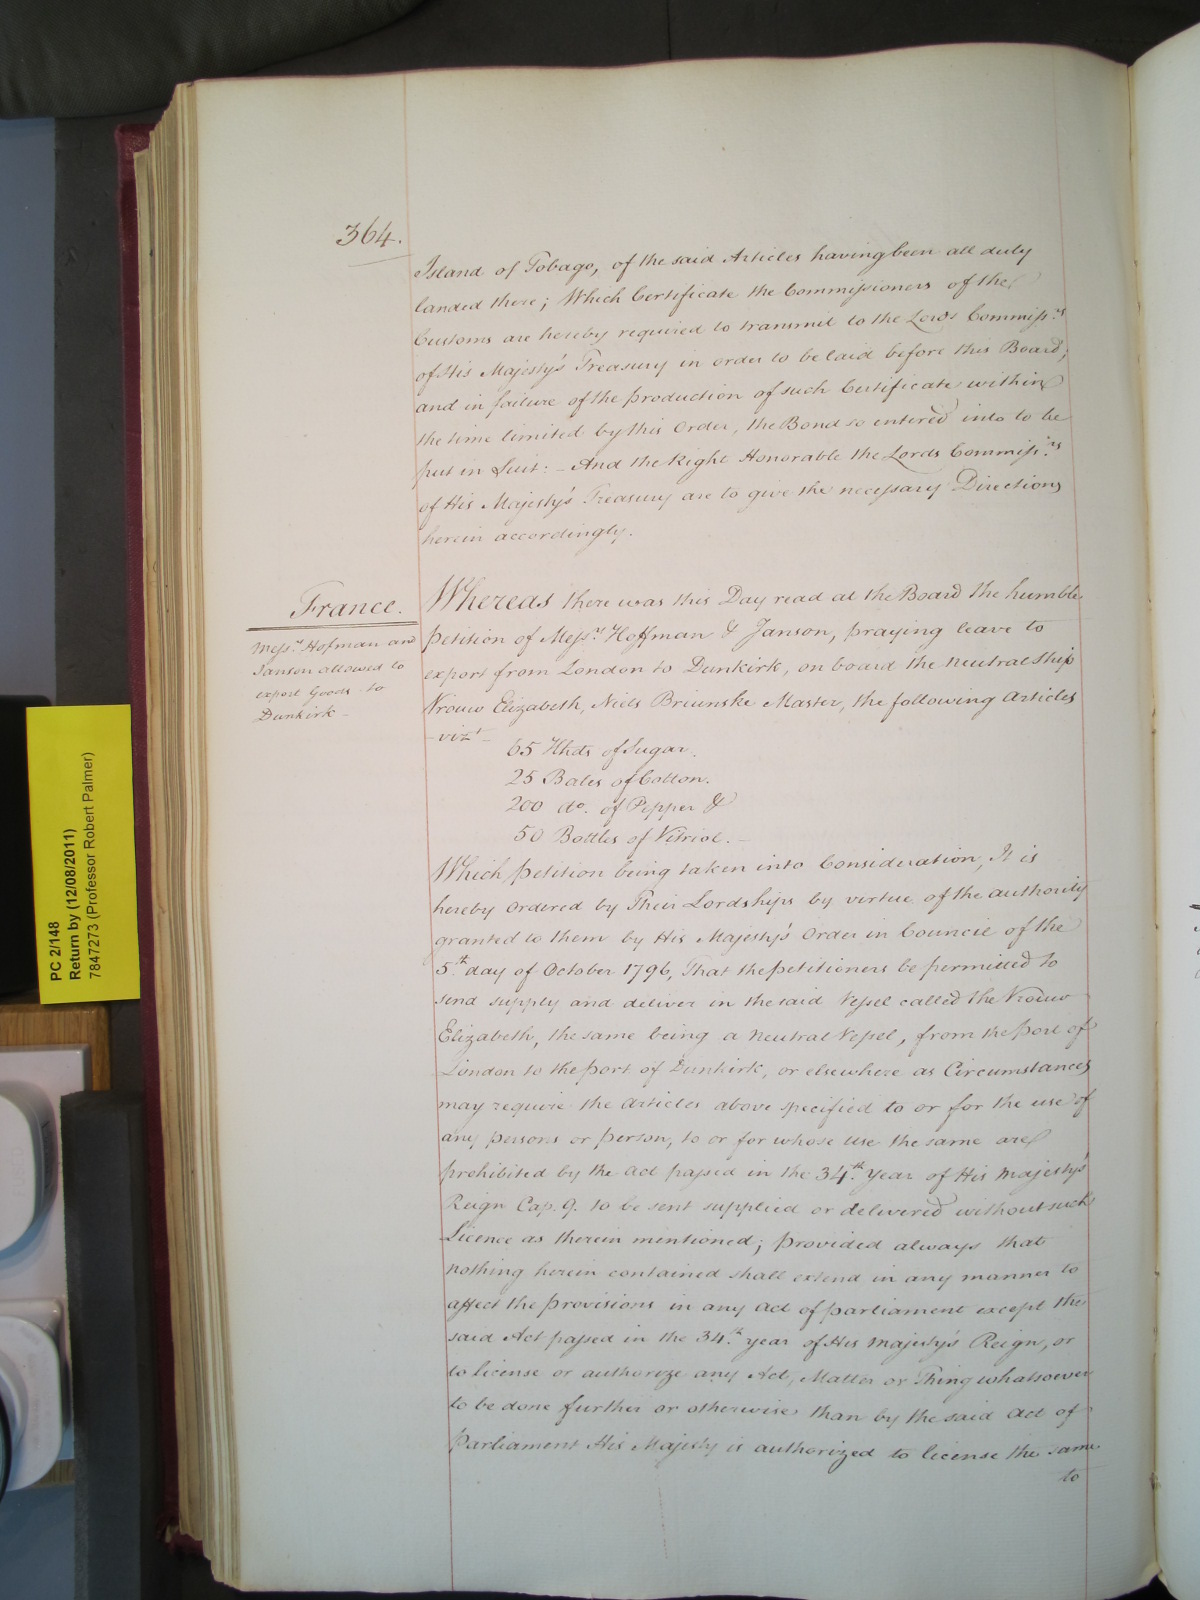 364.
Island of Tobago, of the said Articles having been all duly
landed there; Which Certificate the Commissioners of the
Customs are hereby required to transmit to the Lords Commissrs
of His Majesty's Treasury in order to be laid before this Board;
and in failure of the production of such Certificate within
the time limited by this Order, the Bond so entered into to be
put in Suit: - And the Right Honorable the Lords Commissrs
of His Majesty's Treasury are to give the necessary Directions
herein accordingly.
France.
Messrs Hofman and
Janson allowed to
export Goods to
Dunkirk -
Whereas there was this Day read at the Board the humble
petition of Messrs Hoffman & Janson, praying leave to
export from London to Dunkirk, on board the neutral Ship
Vrouw Elizabeth, Niels Briunske Master, the following articles
- vizt -
65 Hhds of Sugar.
25 Bales of Cotton.
200 do. of Pepper &
50 Bottles of Vitriol. -
Which petition being taken into Consideration, It is
hereby ordered by Their Lordships by virtue of the authority
granted to them by His Majesty's Order in Council of the
5th day of October 1796, That the petitioners be permitted to
send supply and deliver in the said Vessel called the Vrouw
Elizabeth, the same being a neutral Vessel, from the port of
London to the port of Dunkirk, or elsewhere as Circumstances
may require the articles above specified to or for the use of
any persons or person, to or for whose use the same are
prohibited by the act passed in the 34th Year of His Majesty's
Reign Cap. 9. to be sent supplied or delivered without such
Licence as therein mentioned; provided always that
nothing herein contained shall extend in any manner to
affect the provisions in any act of parliament except the
said Act passed in the 34th year of His Majesty's Reign, or
to license or authorize any Act, Matter or Thing whatsoever
to be done further or otherwise than by the said act of
Parliament His Majesty is authorized to license the same
to
PC 2/148
Return by (12/08/2011)
7847273 (Professor Robert Palmer)